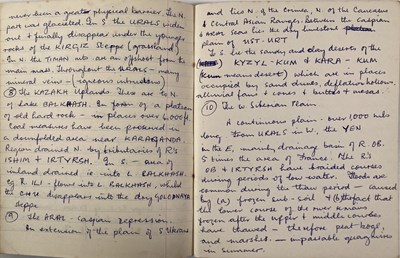 never been a great physical barrier. The N.
part was glaciated. In S. the URALS widen
out & finally disappear under the younger
rocks of the KIRGIZ Steppe (grassland)
In N. the TIMAN mts are an offshoot from the
main mass. Throughout the URALS - many
mineral veins - igneous intrusions
⑧ The KAZAKH Uplands. These are to N.
of Lake BALKHASH. In form of a plateau
of old hard rock - in places over 6,000ft.
Coal measures have been preserved in
a downfolded area near KARAGANDA
Region drained N. by tributaries of R's
ISHIM & IRTYRSH. In S. - area of
inland drained is into L. BALKHASH.
eg R. ILI flows into L BALKHASH, whilst
the disappears into the dry GOLODNAYA
steppe
⑨ The ARAL-Caspian Depression.
An extension of the plain of S. Ukraine
and lies N. of the Crimea, N. of the Caucasus
& Central Asian Ranges. Between the Caspian
& ARAL Seas lies the dry limestone
plain of UST-URT
To S. lie the sandy and clay deserts of the
KYZYL-KUM & KARA-KUM
(Kum means desert) which are in places
occupied by sand dunes, deflation hollows,
alluvial fans & cones & buttes & mesas.
⑩ The W Siberian Plain
A continuous plain - over 1,000 mls
long from URALS in W., the YEN
in the E, mainly drainage basin of R. OB.
5 times the area of France. The R's
OB & IRTYRSH have braided courses
during periods of low water. Floods are
common during the thaw period - caused
by (a) frozen sub-soil & (b) the fact that
the lower course of the river remains
frozen after the upper & middle courses
have thawed - therefore peat bogs,
and marshes - impassable quagmires
in summer.